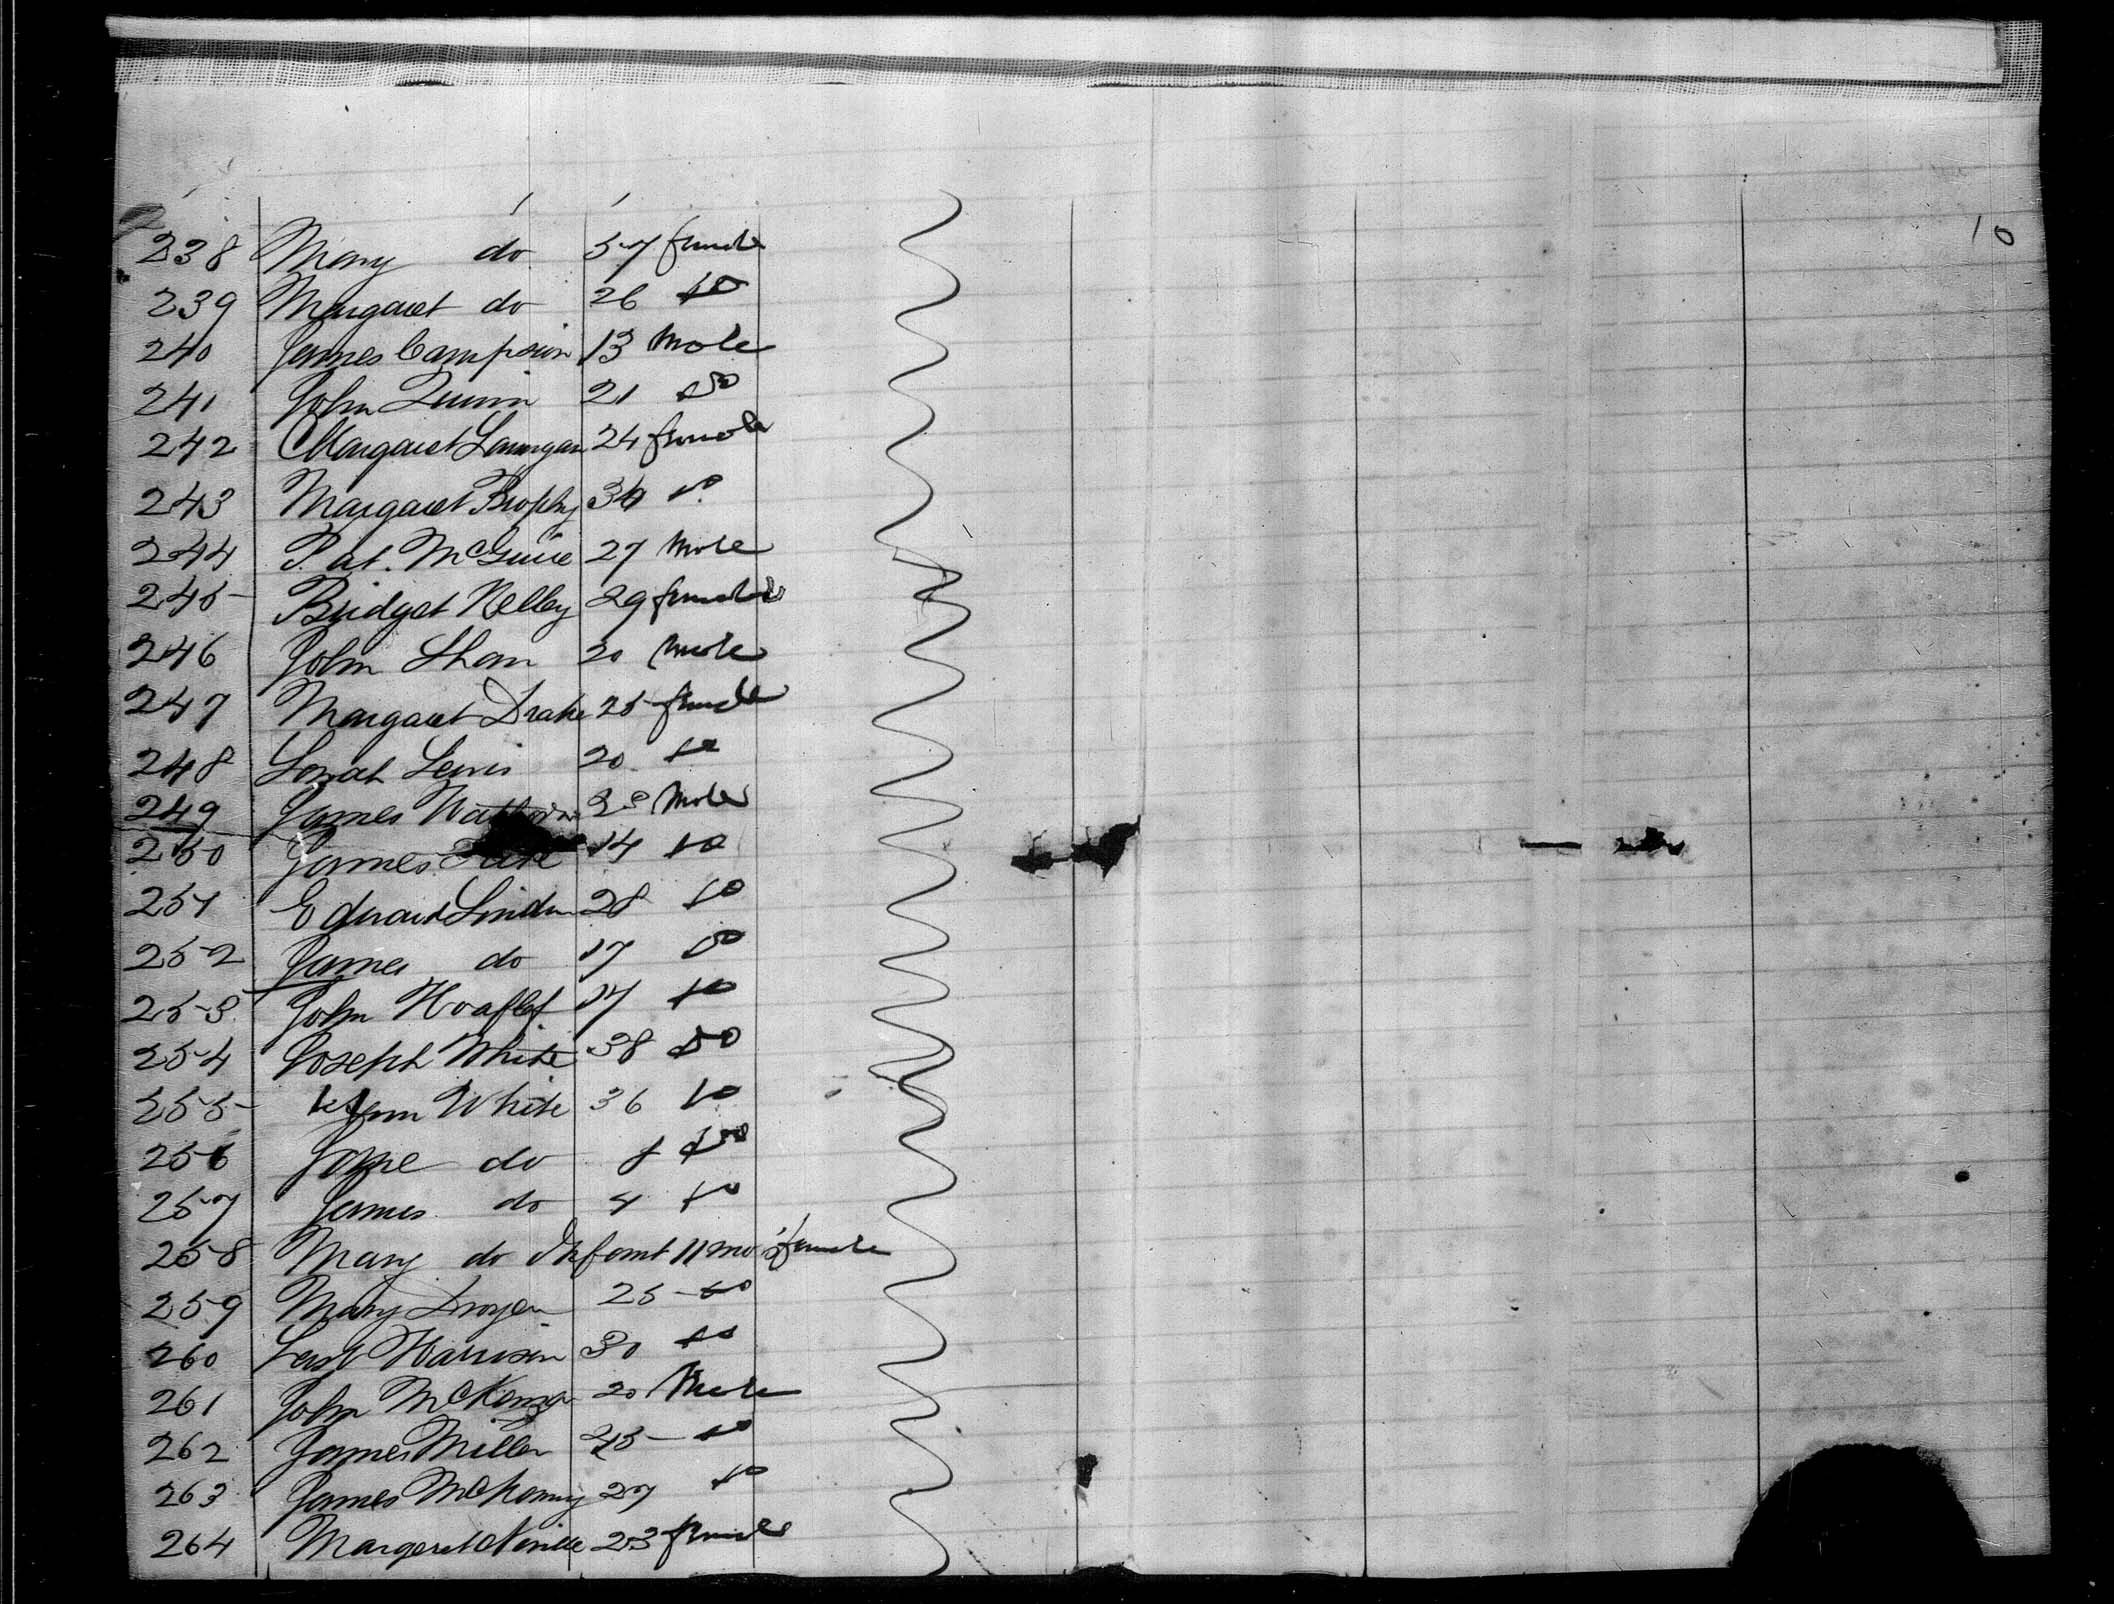 10
238 Mary do 57 female
239 Margaret do 26 do
240 James Campion 13 Male
241 John Quinn 21 do
242 Margaret Lannigan 24 female
243 Margaret Brophy 34 do
244 Pat. McGuire 27 Male
245 Bridget Kelley 29 female
246 John Shan 20 Male
247 Margaret Drake 25 female
248 Lewis 20 do
249 James Male
250 James 14 do
251 Edward Linden 28 do
252 James do 17 do
253 John 17 do
254 Joseph White 38 do
255 Ann White 36 do
256 do 8 do
257 James do 4 do
258 Mary do Infant 11 mo female
259 Mary 25 do
260 Harrison 30 do
261 John 20 Male
262 James Miller do
263 James 27 do
264 Margaret Neville 23 female